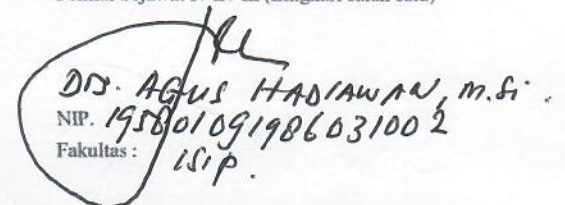 Drs. AGUS HADIAWAN, M.Si.
NIP. 195801091986031002
Fakultas : ISIP.